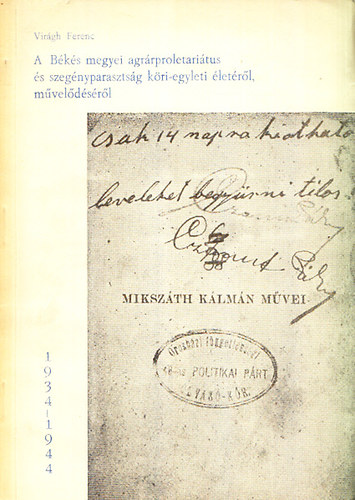 Virágh Ferenc
A Békés megyei agrárproletariátus
és szegényparasztság köri-egyleti életéről,
művelődéséről
csak 14 napra kiadható
leveleket begyürni tilos
MIKSZÁTH KÁLMÁN MŰVEI
Orosházi függetlenségi
48-as POLITIKAI PÁRT
OLVASÓ-KÖR.
1934-1944